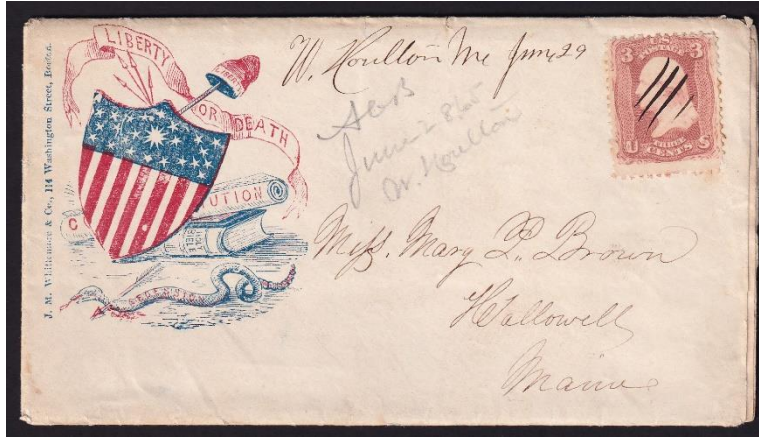 J. M. Whittemore & Co., 114 Washington Street, Boston.
LIBERTY
OR DEATH
LIBERTY
C
UTION
HOLY
BIBLE
SECESSION
W. Houlton Me June 29
June 28 65
W. Houlton
U.S.
POSTAGE
3
3
THREE
CENTS
U
S
Miss. Mary P. Brown
Hallowell
Maine